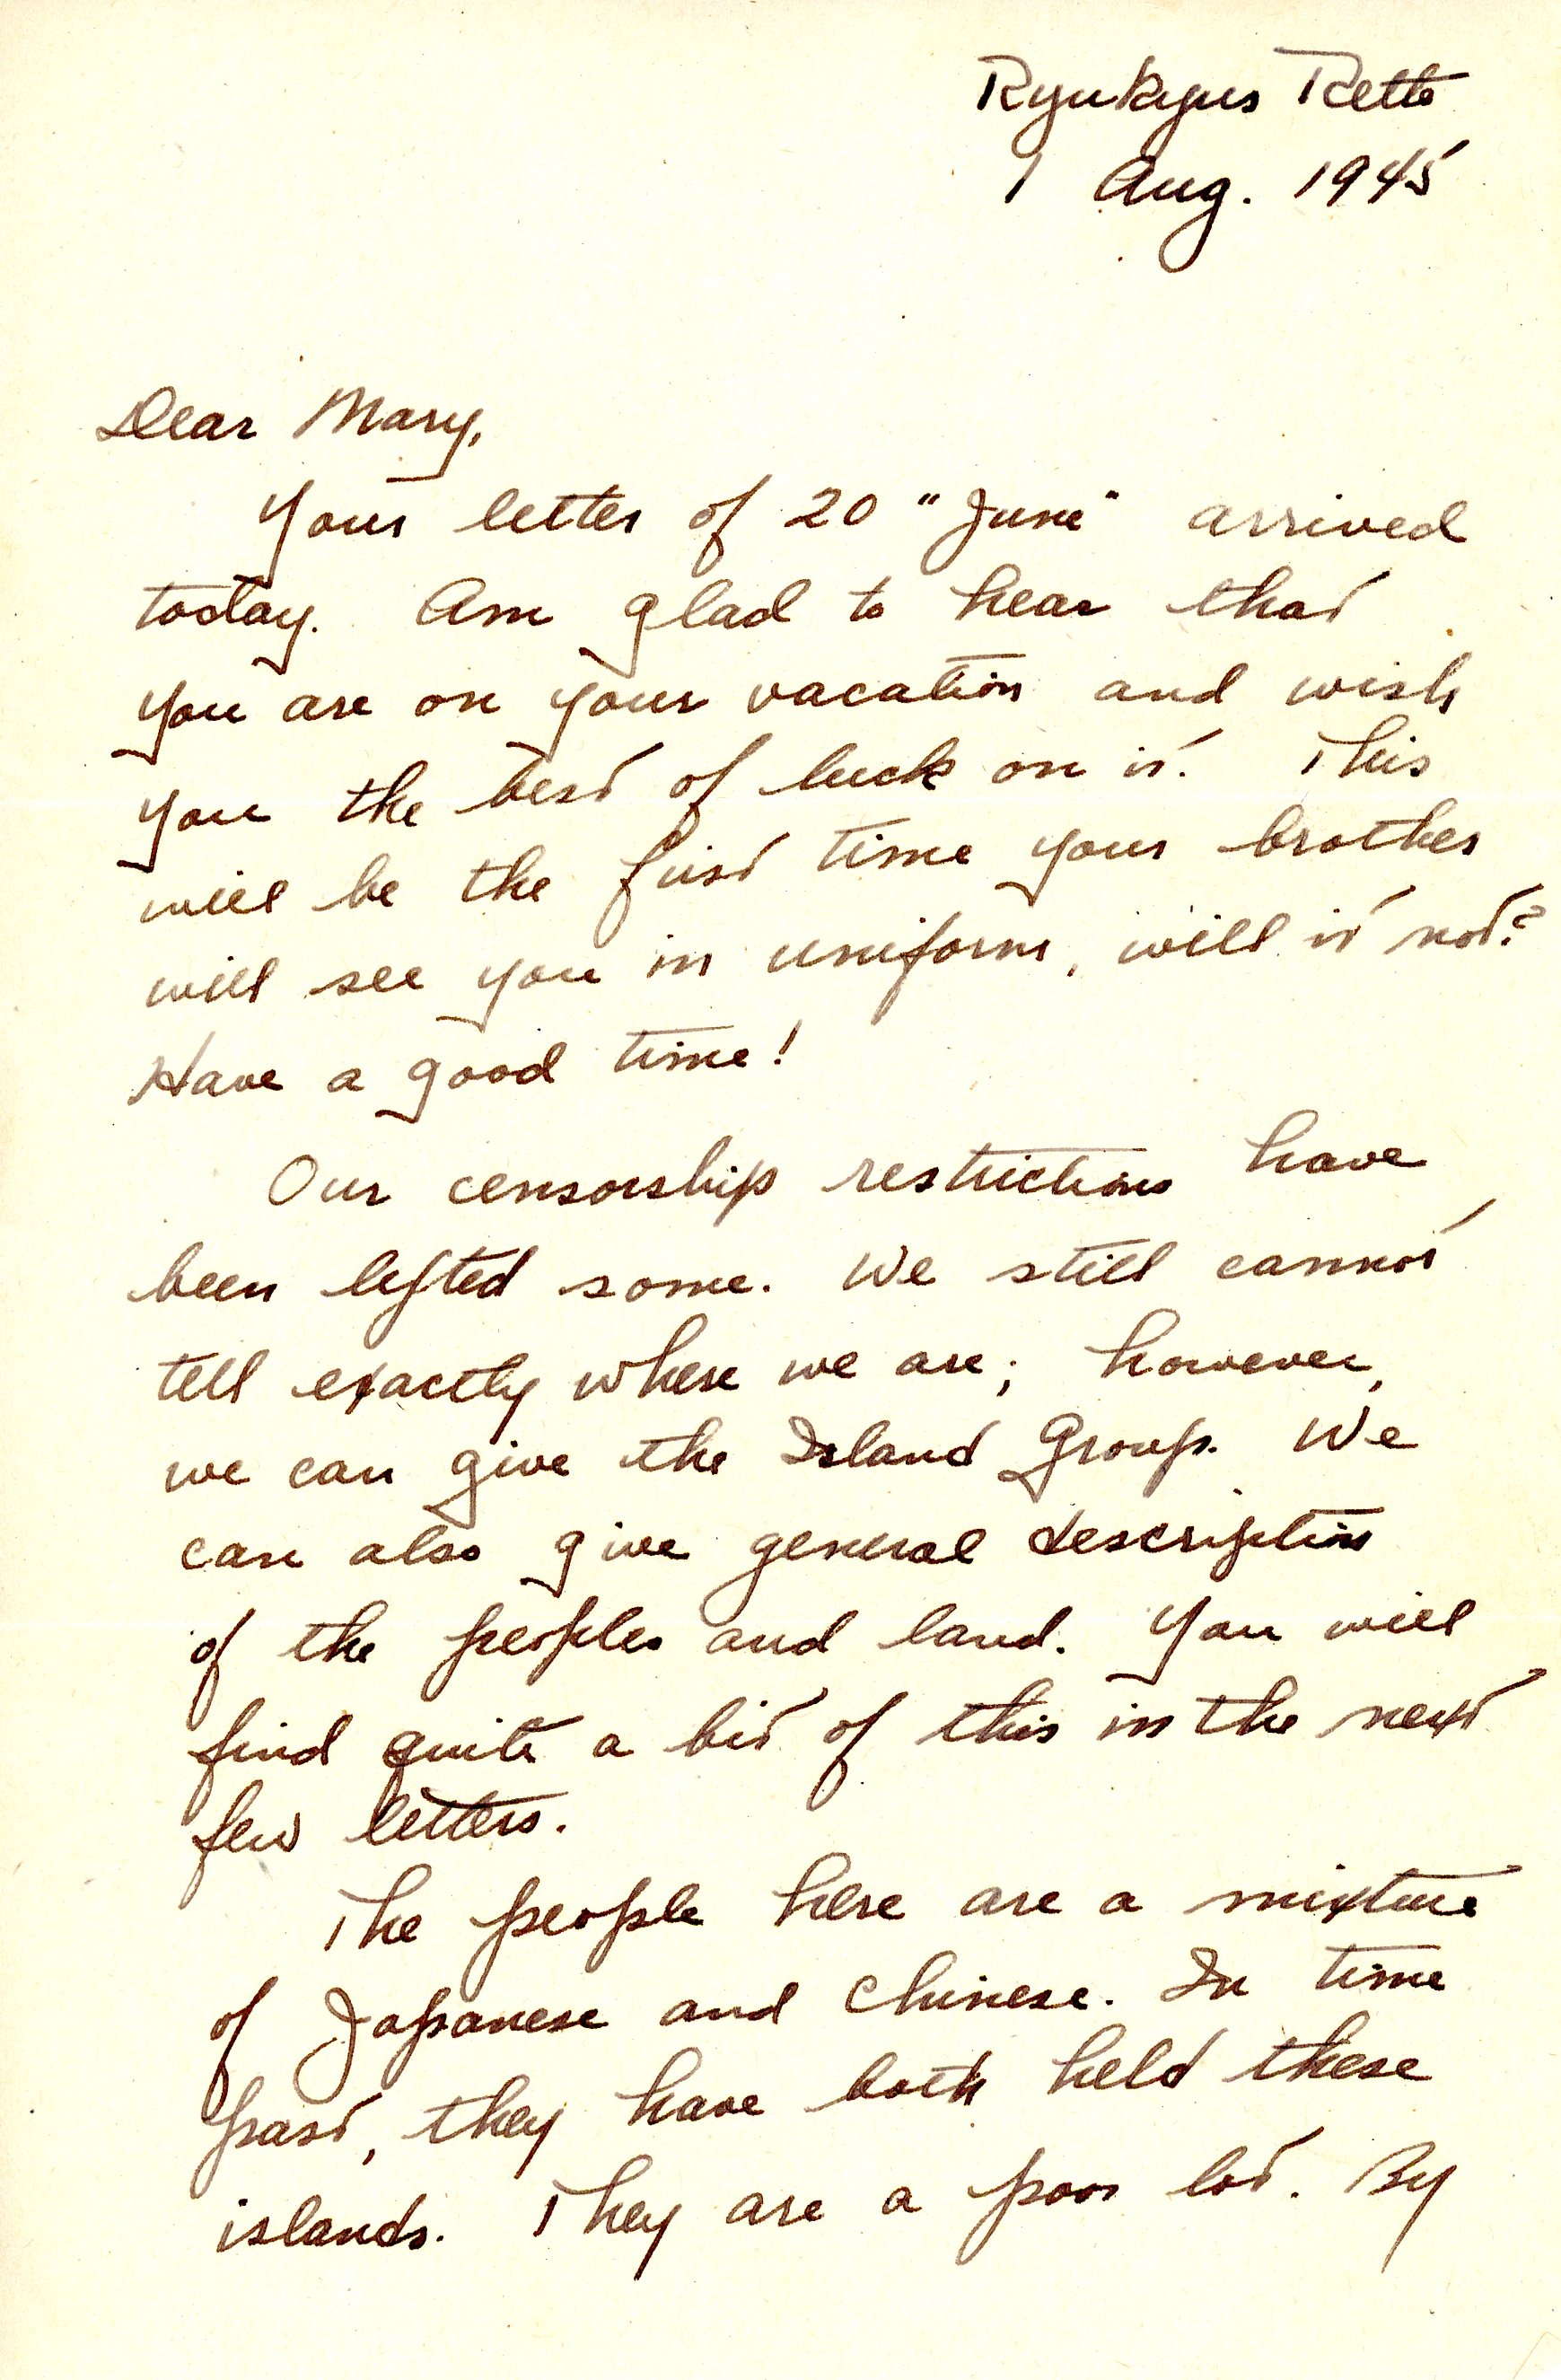 Ryukyus Retto
1 Aug. 1945
Dear Mary,
Your letter of 20 "June" arrived
today. Am glad to hear that
you are on your vacation and wish
you the best of luck on it. This
will be the first time your brother
will see you in uniform, will it not?
Have a good time!
Our censorship restrictions have
been lifted some. We still cannot
tell exactly where we are; however,
we can give the Island Group. We
can also give general description
of the peoples and land. You will
find quite a bit of this in the next
few letters.
The people here are a mixture
of Japanese and Chinese. In time
past, they have both held these
islands. They are a poor lot. By